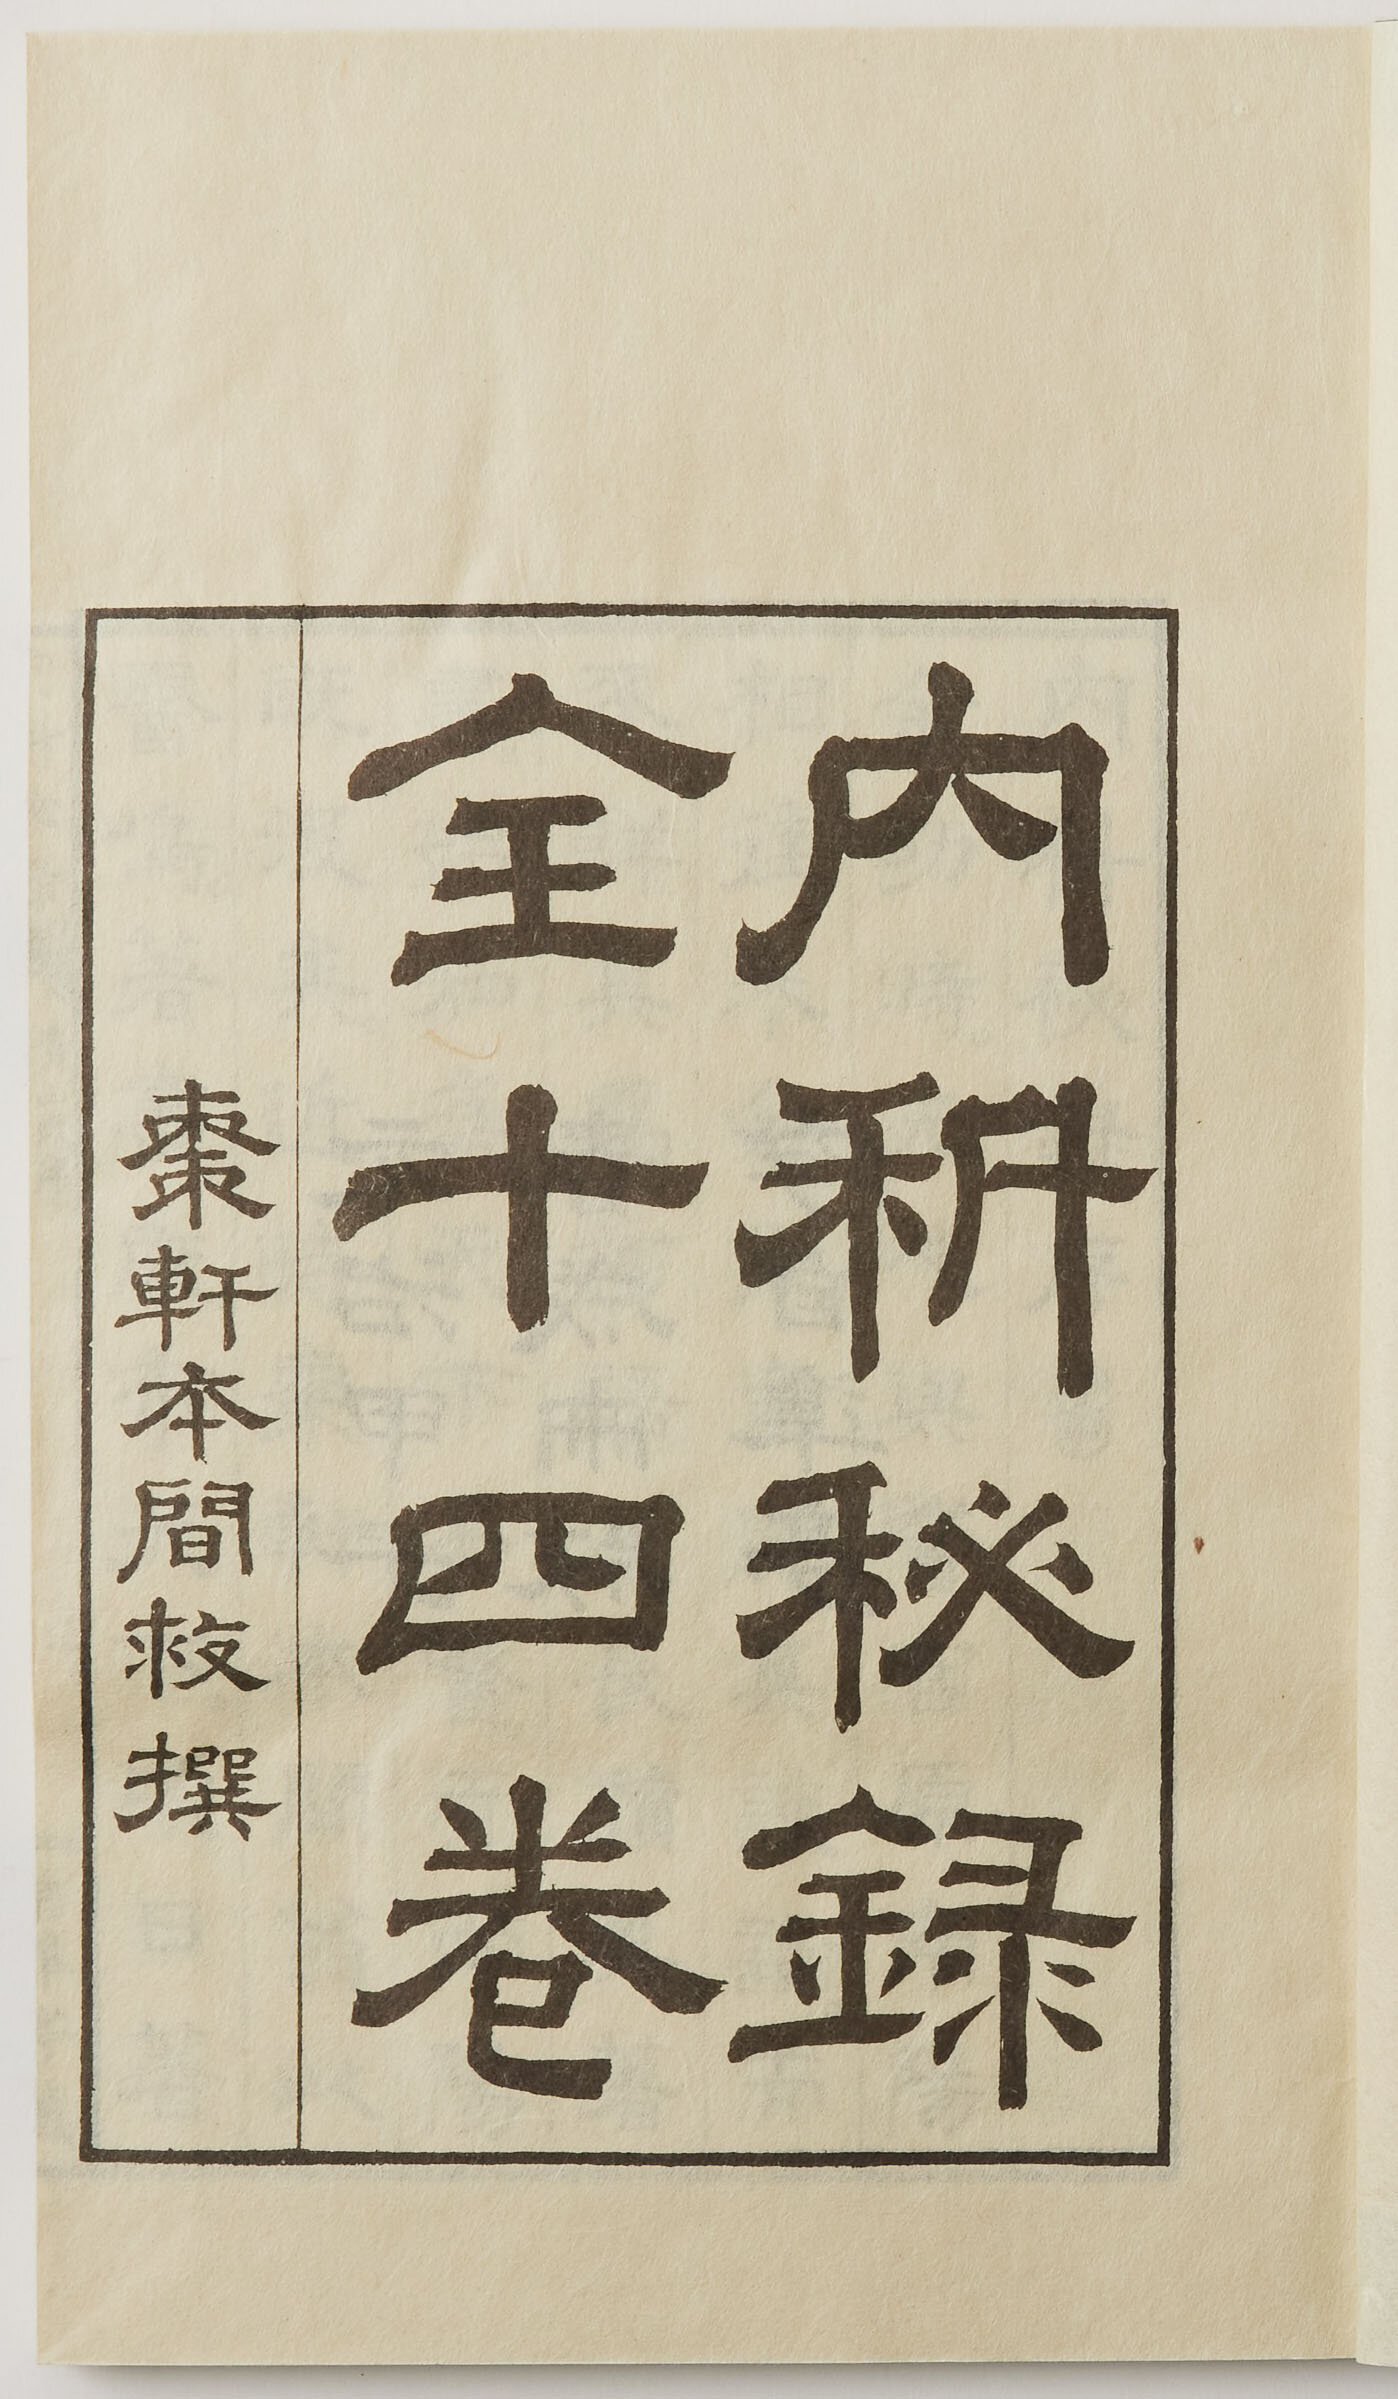 内科秘録
全十四卷
棗軒本間救撰